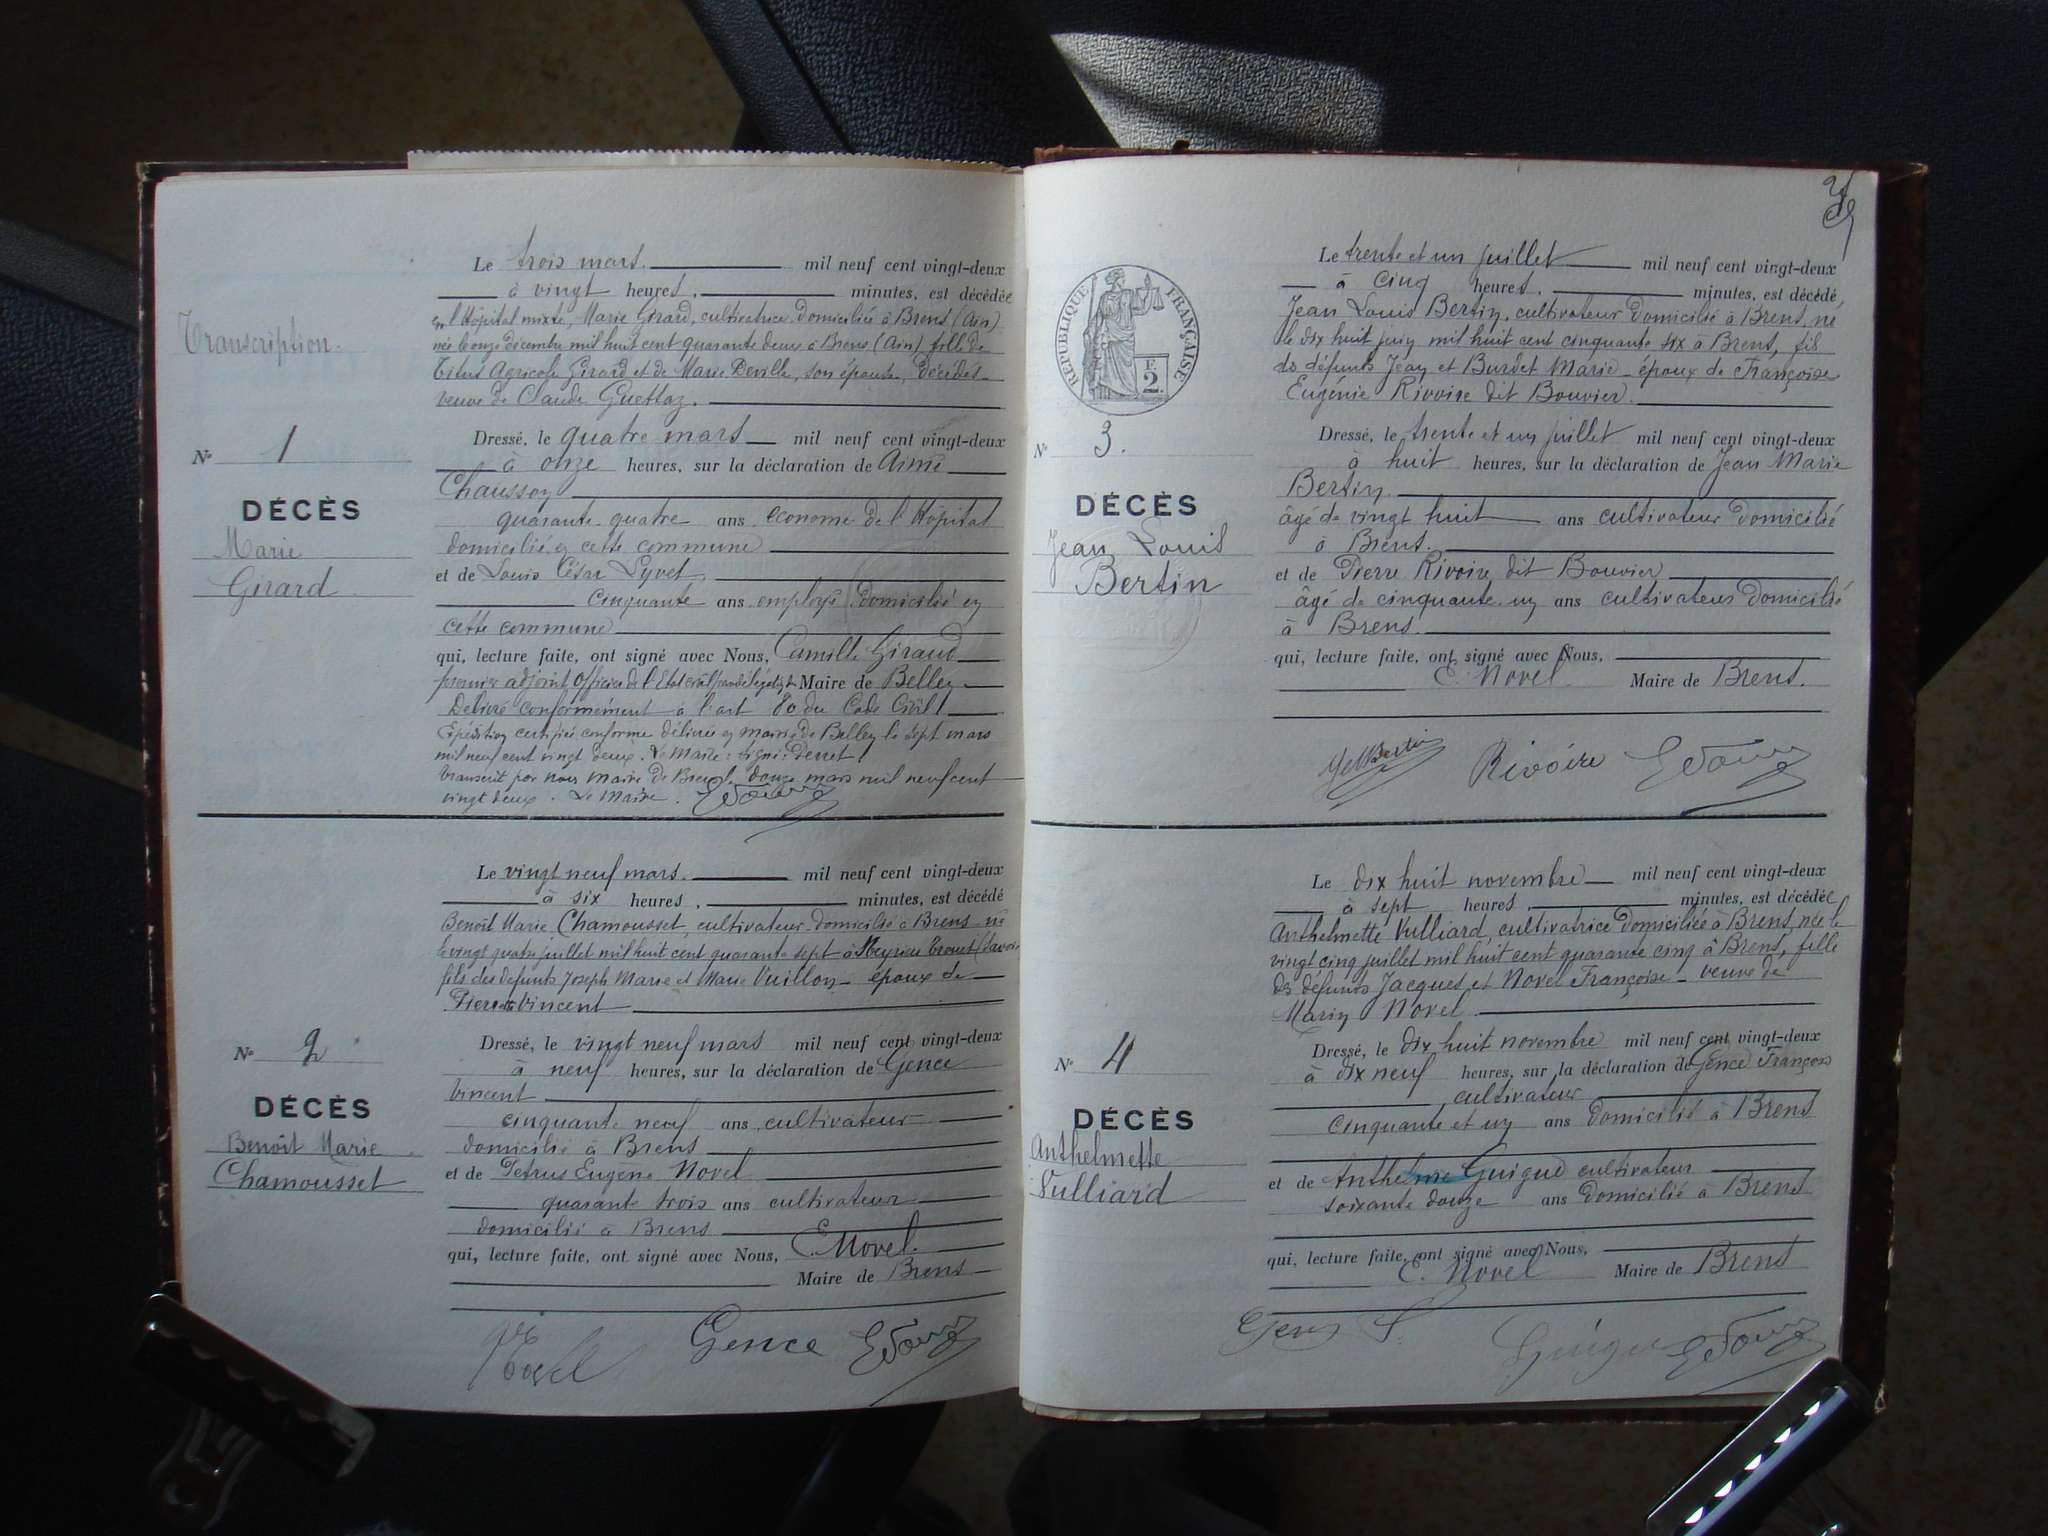 Le trois mars. mil neuf cent vingt-deux
à vingt heures, minutes, est décédée
en l'Hôpital mixte, Marie Girard, cultivatrice domiciliée à Brens (Ain)
née le onze décembre mil huit cent quarante deux à Brens (Ain) fille de
Titus Agricole Girard et de Marie Deville, son épouse, décédés
veuve de Claude Guettaz.
Transcription.
N° 1
DÉCÈS
Marie
Girard
Dressé, le quatre mars mil neuf cent vingt-deux
à onze heures, sur la déclaration de Aimé
Chausson
quarante quatre ans économe de l'Hôpital
domicilié en cette commune
et de Louis César Lyvet,
cinquante ans employé domicilié en
cette commune
qui, lecture faite, ont signé avec Nous, Camille Giraud
premier adjoint Officier de l'Etat civil par délégation Maire de Belley
Délivré conformément à l'art 80 du Code Civil
Expédition certifiée conforme délivrée en mairie de Belley le sept mars
mil neuf cent vingt deux. Le Maire : signé : Perret
transcrit par nous Maire de Brens, douze mars mil neuf cent
vingt deux. Le Maire.
Le vingt neuf mars. mil neuf cent vingt-deux
à six heures, minutes, est décédé
Benoît Marie Chamousset, cultivateur domicilié à Brens né
le vingt quatre juillet mil huit cent quarante sept à Meyrieu Trouet (Savoie
fils des défunts Joseph Marie et Marie Vuillon - époux de
Pierrette Vincent
N° 2
DÉCÈS
Benoît Marie
Chamousset
Dressé, le vingt neuf mars mil neuf cent vingt-deux
à neuf heures, sur la déclaration de Gence
Vincent
cinquante neuf ans cultivateur
domicilié à Brens
et de Petrus Eugène Novel
quarante trois ans cultivateur
domicilié à Brens
qui, lecture faite, ont signé avec Nous, E. Novel
Maire de Brens
Novel Gence
Le trente et un juillet mil neuf cent vingt-deux
à cinq heures, minutes, est décédé
Jean Louis Bertin, cultivateur domicilié à Brens, né
le dix huit juin mil huit cent cinquante six à Brens, fils
des défunts Jean et Burdet Marie - époux de Françoise
Eugénie Rivoire dit Bouvier.
RÉPUBLIQUE FRANÇAISE
F.
2.
N° 3.
DÉCÈS
Jean Louis
Bertin
Dressé, le trente et un juillet mil neuf cent vingt-deux
à huit heures, sur la déclaration de Jean Marie
Bertin.
âgé de vingt huit ans cultivateur domicilié
à Brens.
et de Pierre Rivoire dit Bouvier
âgé de cinquante un ans cultivateur domicilié
à Brens.
qui, lecture faite, ont signé avec Nous,
E. Novel Maire de Brens.
Bertin Rivoire
Le dix huit novembre mil neuf cent vingt-deux
à sept heures, minutes, est décédée
Anthelmette Vulliard, cultivatrice domiciliée à Brens, née le
vingt cinq juillet mil huit cent quarante cinq à Brens, fille
des défunts Jacques et Novel Françoise - veuve de
Marin Novel
N° 4
DÉCÈS
Anthelmette
Vulliard
Dressé, le dix huit novembre mil neuf cent vingt-deux
à dix neuf heures, sur la déclaration de Gence François
cultivateur
cinquante et un ans domicilié à Brens
et de Anthelme Guigue cultivateur
soixante douze ans domicilié à Brens
qui, lecture faite, ont signé avec Nous,
E. Novel Maire de Brens
Guigue